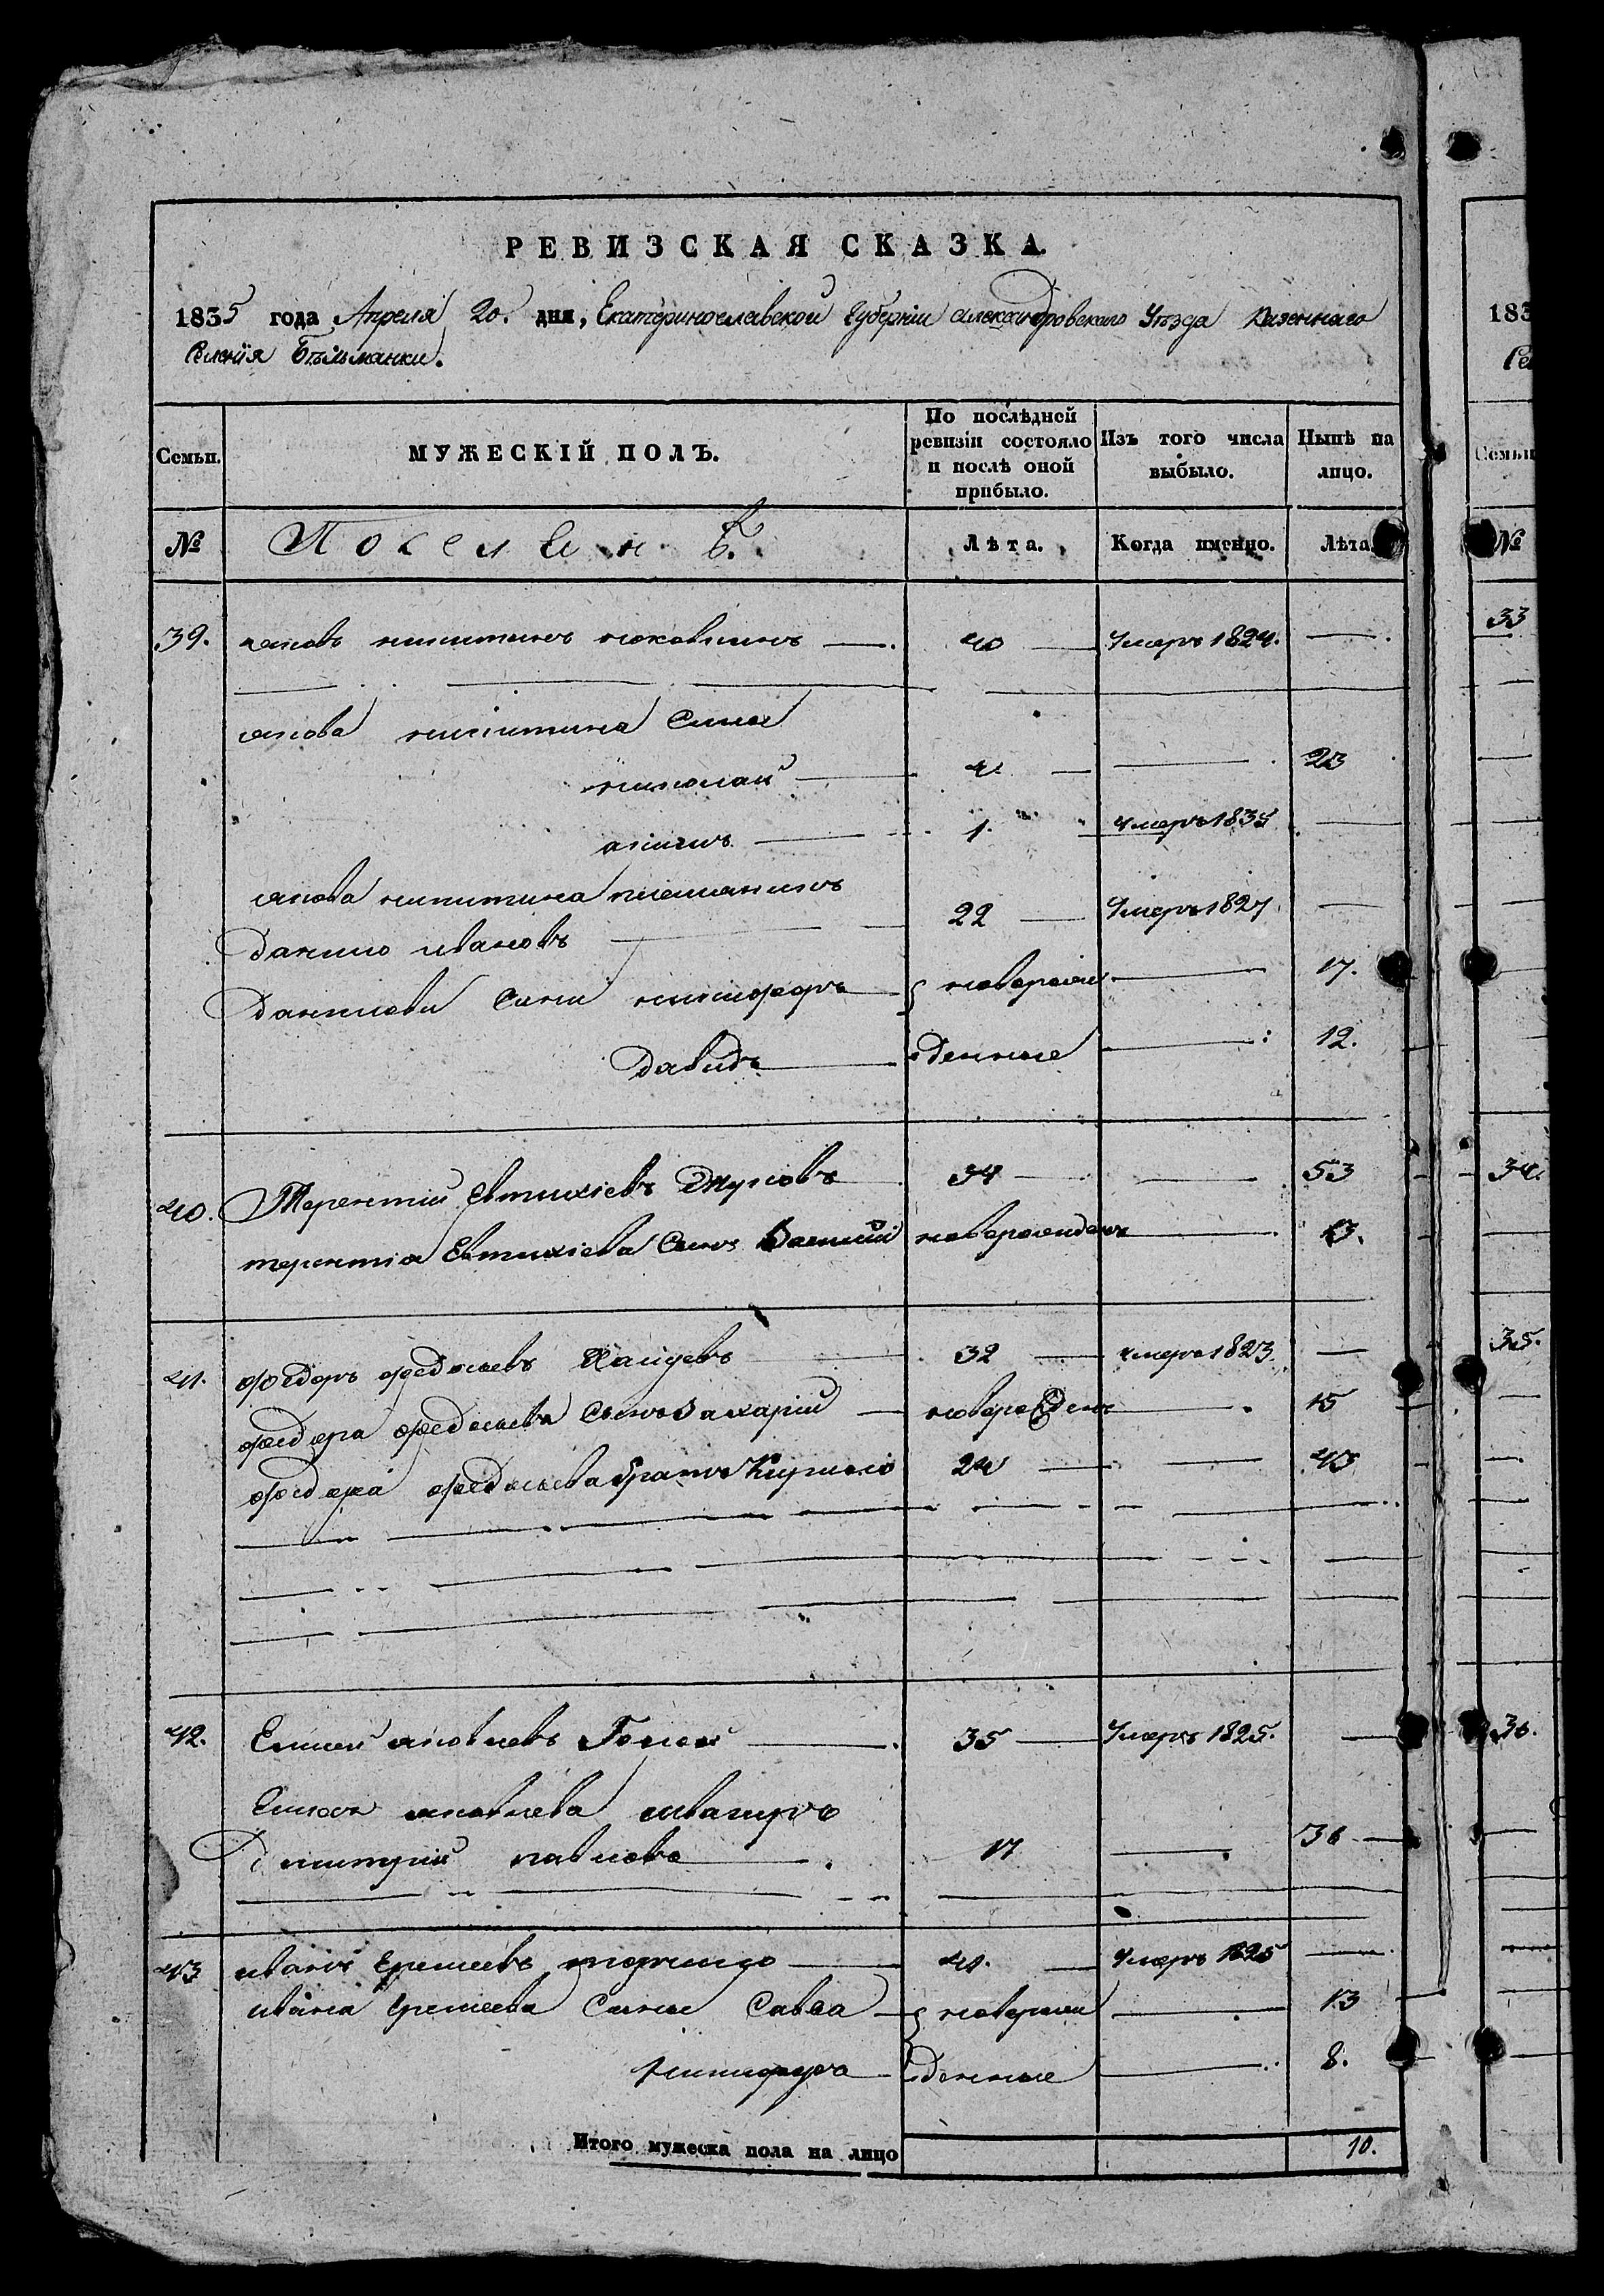 РЕВИЗСКАЯ СКАЗКА.
1835 года Апреля 20. дня, Екатеринославской Губернии Александровского Уѣзда Казеннаго
Селенія Бѣльманки.
Семьи. МУЖЕСКІЙ ПОЛЪ. По послѣдней ревизіи состояло и послѣ оной прибыло. Изъ того числа выбыло. Нынѣ на лицо.
№ Поселянъ. Лѣта. Когда именно. Лѣта.
39. яковъ никитинъ 40 Умеръ 1824.
якова никитина Сыни
николай 4. 23
1. умеръ 1835
якова никитина племянникъ
данило ивановъ 22 Умеръ 1827
данилови Сыни никифоръ новорож 17.
давидъ денные 12.
40. Терентій Евтихіевъ Джусовъ 34 53
терентія Евтихіева Сынъ Василій новорожденъ 13.
41. федоръ федосьевъ 32 умеръ 1823.
федора федосьева Сынъ Захарій новорожденъ 15
федора федосьева братъ Кирило 24 43
42. Елисей яковлевъ Голой 35 Умеръ 1825.
Елисея яковлева швагиръ
дмитрій павловъ 17 36
43 иванъ Еремеевъ 41. Умеръ 1825
ивана Еремеева Сыны Савва новорож 13
никифоръ денные 8.
Итого мужеска пола на лицо 10.
183
Се
Семьи
№
33
34.
35.
36.